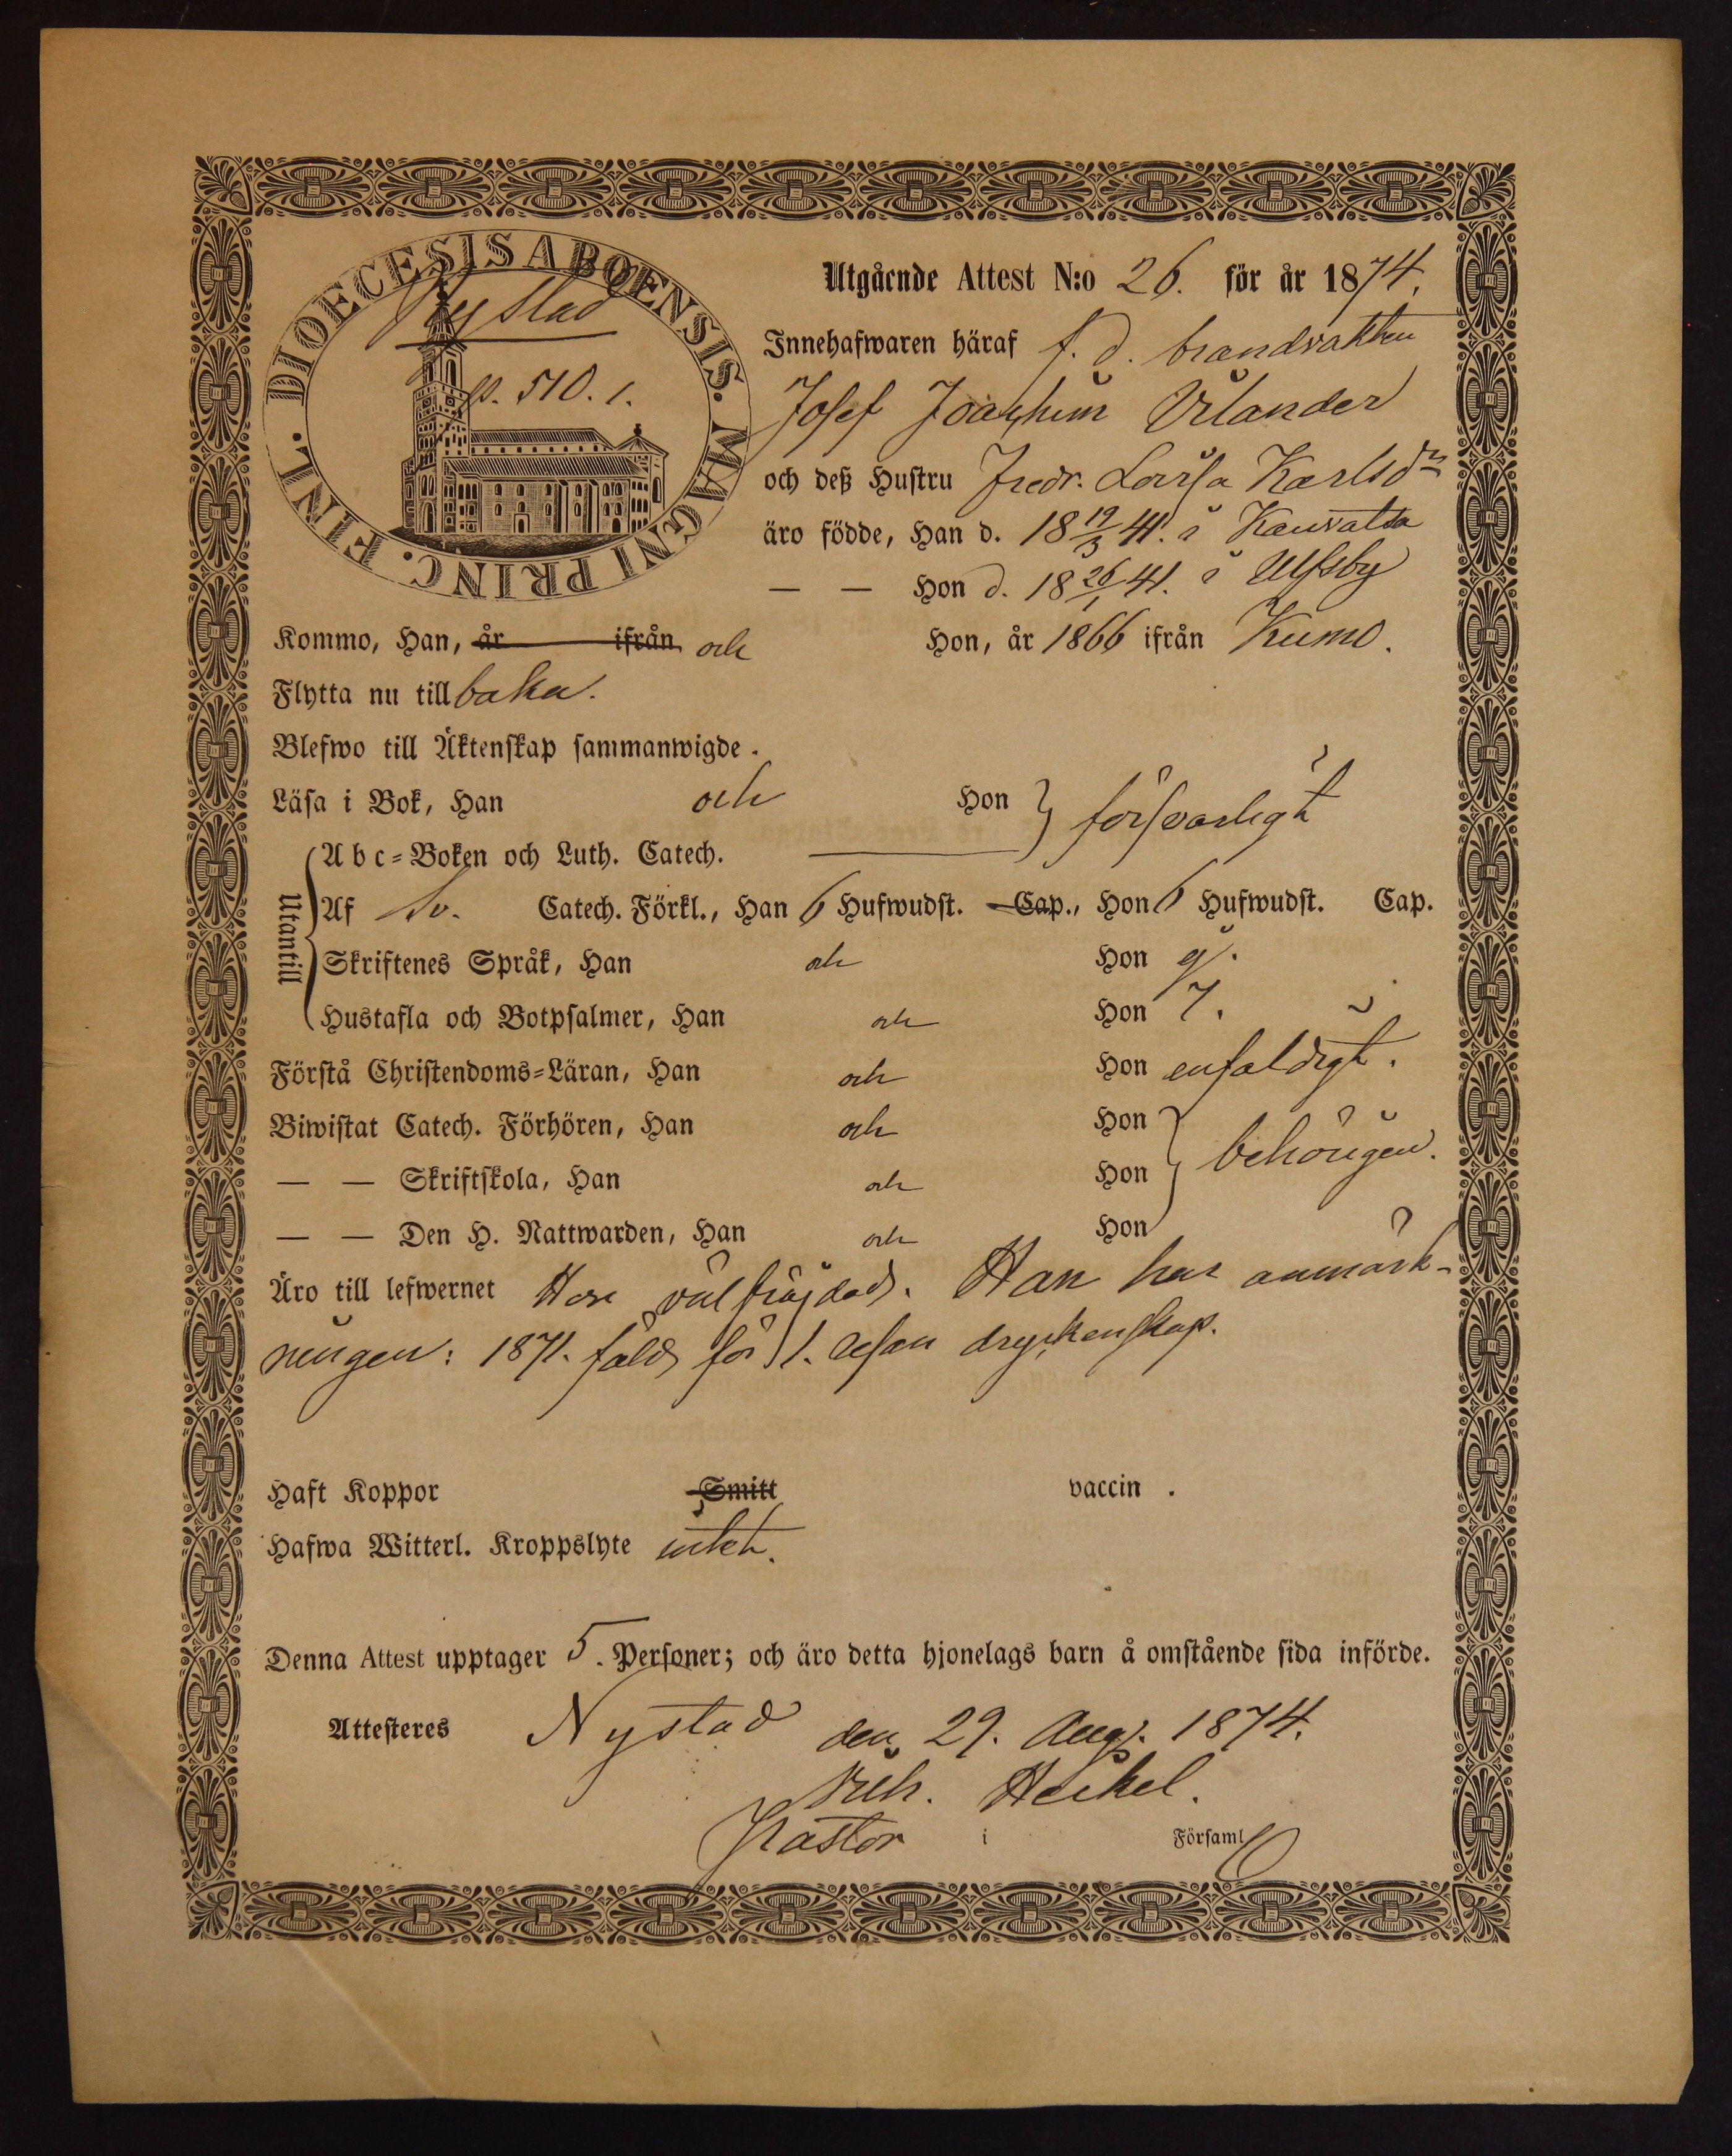 DIOECESIS ABOENSIS. MAGNI PRINC. FINL.
Nystad
p. 510. 1.
Utgående Attest N:o 26. för år 1874.
Innehafwaren häraf f. d. brandvakten
Josef Joachim Vilander
och deß Hustru Fredr. Lovisa Karlsdr
äro födde, Han d. 18 19/3 41. i Kauvatsa
— — Hon d. 18 26/1 41. i Ulfsby
Kommo, Han, år ifrån och Hon, år 1866 ifrån Kumo.
Flytta nu till baka.
Blefwo till Äktenskap sammanwigde .
Läsa i Bok, Han och Hon } försvarligt
Utantill
Abc-Boken och Luth. Catech.
Af Sv. Catech. Förkl., Han 6 Hufwudst. Cap., Hon 6 Hufwudst. Cap.
Skriftenes Språk, Han och Hon
Hustafla och Botpsalmer, Han och Hon 7.
Förstå Christendoms-Läran, Han och Hon enfaldigt.
Biwistat Catech. Förhören, Han och Hon
— — Skriftskola, Han och Hon } behörigen.
— — Den H. Nattwarden, Han och Hon
Äro till lefwernet Hon välfräjdad. Han har anmärk-
ningen: 1871. fäld för 1. resan dryckenskap.
Haft Koppor Smitt vaccin .
Hafwa Witterl. Kroppslyte intet.
Denna Attest upptager 5. Personer; och äro detta hjonelags barn å omstående sida införde.
Attesteres Nystad den 29. Aug. 1874.
Heikel.
Pastor i Församl